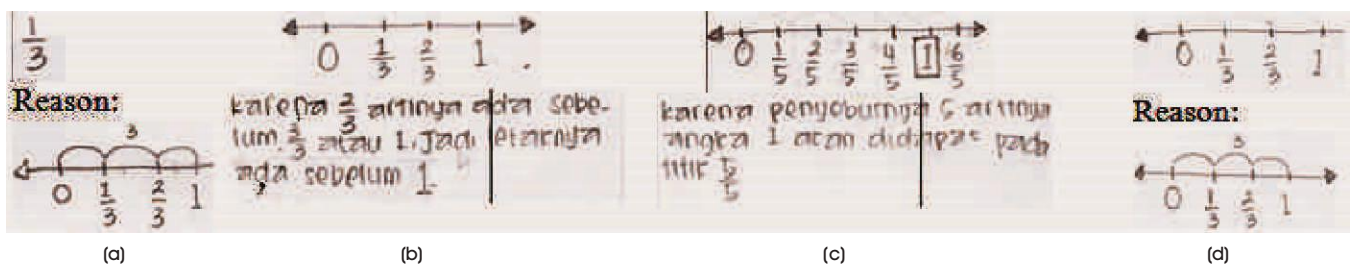 1/3
Reason:
3
0 1/3 2/3 1
(a)
0 1/3 2/3 1
karena 2/3 artinya ada sebe-
lum 3/3 atau 1. Jadi letaknya
ada sebelum 1
(b)
0 1/5 2/5 3/5 4/5 1 6/5
karena penyebutnya 5 artinya
angka 1 akan didapat pada
titik 5/5
(c)
0 1/3 2/3 1
Reason:
3
0 1/3 2/3 1
(d)